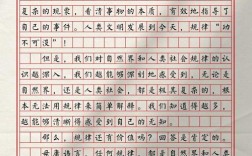 复杂的现象，看清事物的本质，有效地指导了
自己的实践。人类文明发展到今天，规律“功
不可没”！
但是，我们对自然界和人类社会规律的认
识越深入，我们越能够深刻地感受到，无论是
自然界，还是人类社会，都是复杂的，根
本无法用规律来简单解释。我们知道得越多，
越能够清晰得感受到自己的无知。
那么，规律还有价值吗？回答是肯定的。
毋庸讳言，任何规律，都是我们